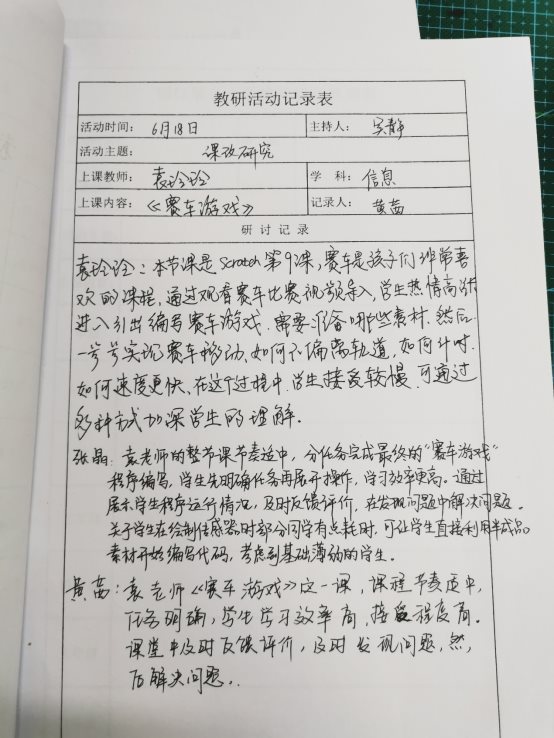 教研活动记录表
活动时间: 6月18日 主持人: 吴静
活动主题: 课改研究
上课教师: 袁玲玲 学 科: 信息
上课内容: 《赛车游戏》 记录人: 黄茜
研 讨 记 录
袁玲玲:本节课是Scratch第9课,赛车是孩子们非常喜
欢的课程,通过观看赛车比赛视频导入,学生热情高涨
进入引出编写赛车游戏.需要准备哪些素材.然后
一步步实现赛车移动.如何不偏离轨道,如何计时
如何速度更快、在这个过程中.学生接受较慢.可通过
多种方式加深学生的理解.
张晶:袁老师的整节课节奏适中,分任务完成最终的“赛车游戏”
程序编写,学生先明确任务再展开操作,学习效率更高。通过
展示学生程序运行情况,及时反馈评价,在发现问题中解决问题。
关于学生在绘制传感器时部分同学有点耗时,可让学生直接利用半成品
素材开始编写代码,考虑到基础薄弱的学生。
黄茜:袁老师《赛车游戏》这一课,课程节奏适中,
任务明确,学生学习效率高,接受程度高。
课堂中及时反馈评价,及时发现问题,然,
后解决问题..